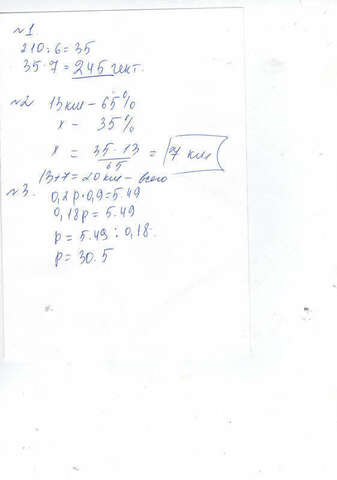 №1.
210:6=35
35·7=245 гект.
№2 13 км - 65%
x - 35%
x = 35·13/65 = 7 км
13+7=20 км - всего
№3. 0,2p·0,9=5.49
0,18p=5.49
p=5.49:0,18.
p=30.5